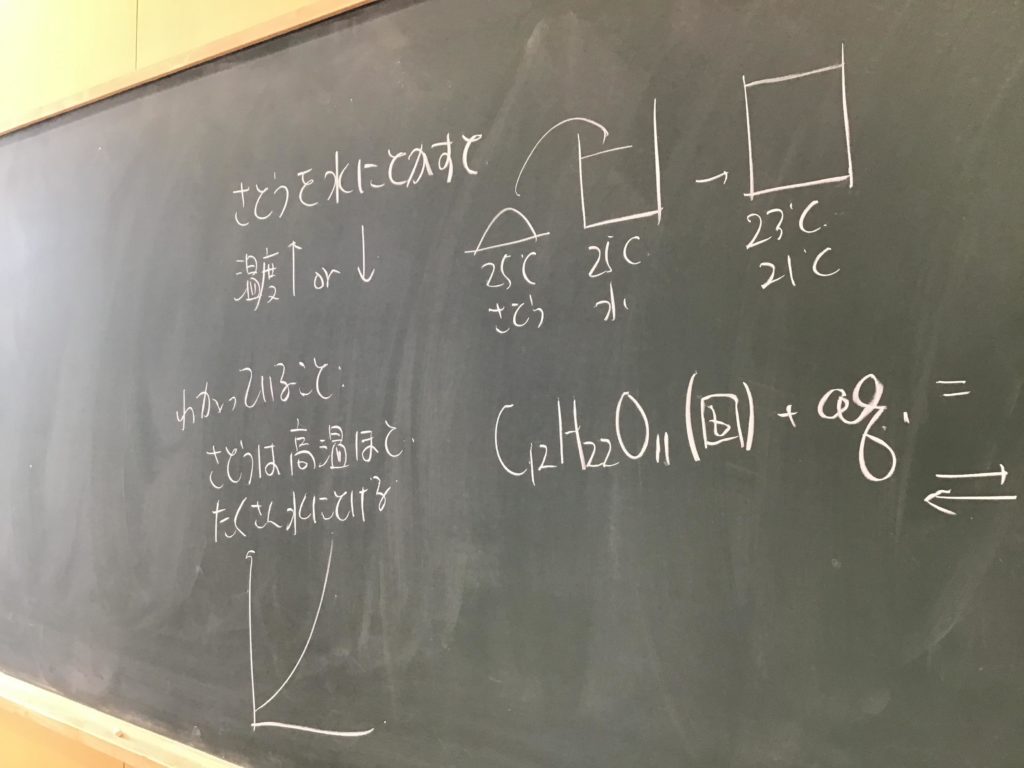 さとうを水にとかすと
温度↑ or ↓
25℃ 25℃
さとう 水
→
21℃
わかっていること:
さとうは高温ほど
たくさん水にとける
C₁₂H₂₂O₁₁(固) + aq. =
⇄